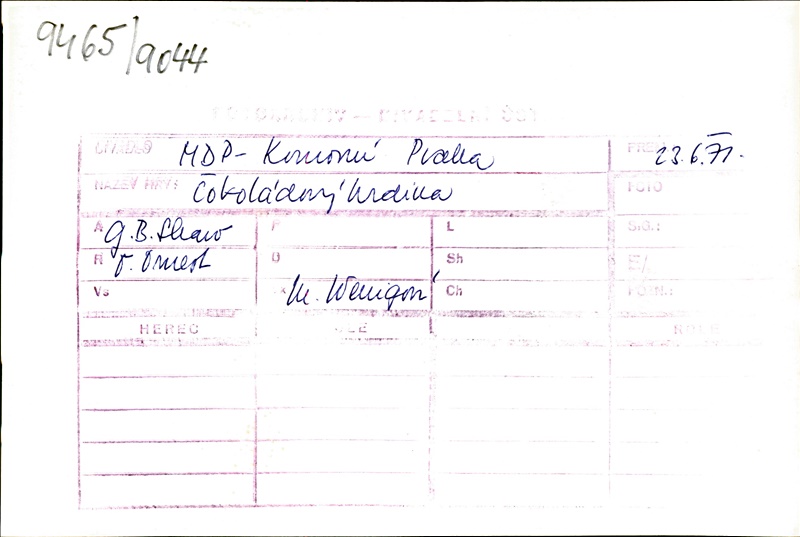 9465/9044
FOTODOKUMENTY – DIVADELNÍ ÚST
DIVADLO MDP - Komorní Praha PREM 23.6.71.
NÁZEV HRY: Čokoládový hrdina FOTO
A G.B. Shaw P L SIG.:
R O. Ornest D Sh
Vs K M. Wenigová Ch FORM.:
HEREC ROLE ROLE